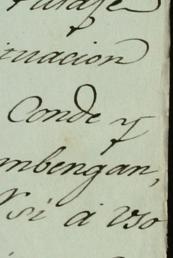 ituacion
Conde y
mbengan,
si á vso